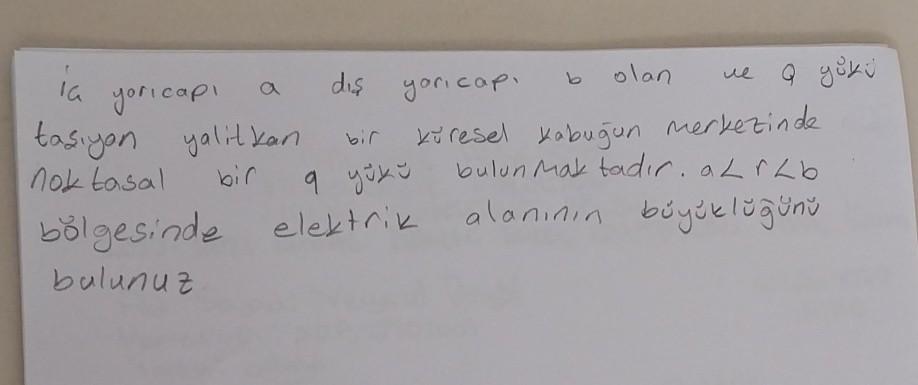 iç yarıcapı a dış yarıcapı b olan ve Q yükü
taşıyan yalıtkan bir küresel kabuğun merkezinde
noktasal bir q yükü bulunmaktadır. a<r<b
bölgesinde elektrik alanının büyüklüğünü
bulunuz